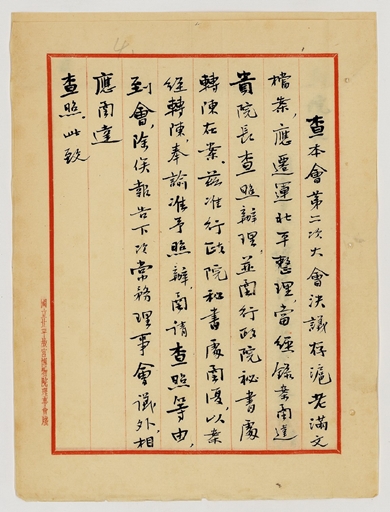 查本會第二次大會決議存滬老滿文
檔案，應遷運北平整理，當經錄案函達
貴院長查照辦理，並函行政院秘書處
轉陳在案。茲准行政院秘書處函復，以案
經轉陳，奉諭准予照辦，函請查照等由，
到會，除俟報告下次常務理事會議外，相
應函達
查照，此致
國立北平故宮博物院理事會牋